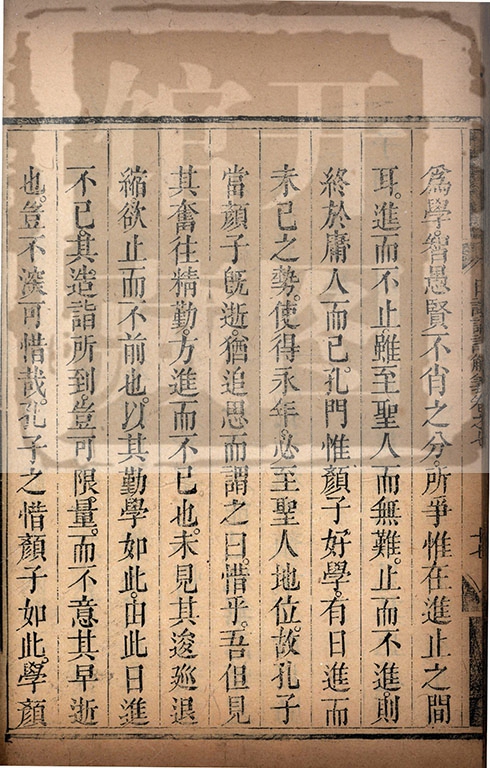 爲學。智愚賢不肖之分。所爭惟在進止之間
耳。進而不止。雖至聖人而無難。止而不進。則
終於庸人而已。孔門惟顏子好學。有日進而
未已之勢。使得永年。必至聖人地位。故孔子
當顏子旣逝。猶追思而謂之曰。惜乎。吾但見
其奮往精勤。方進而不已也。未見其逡廵退
縮欲止而不前也。以其勤學如此。由此日進
不已。其造詣所到。豈可限量。而不意其早逝
也。豈不深可惜哉。孔子之惜顏子如此。學顏